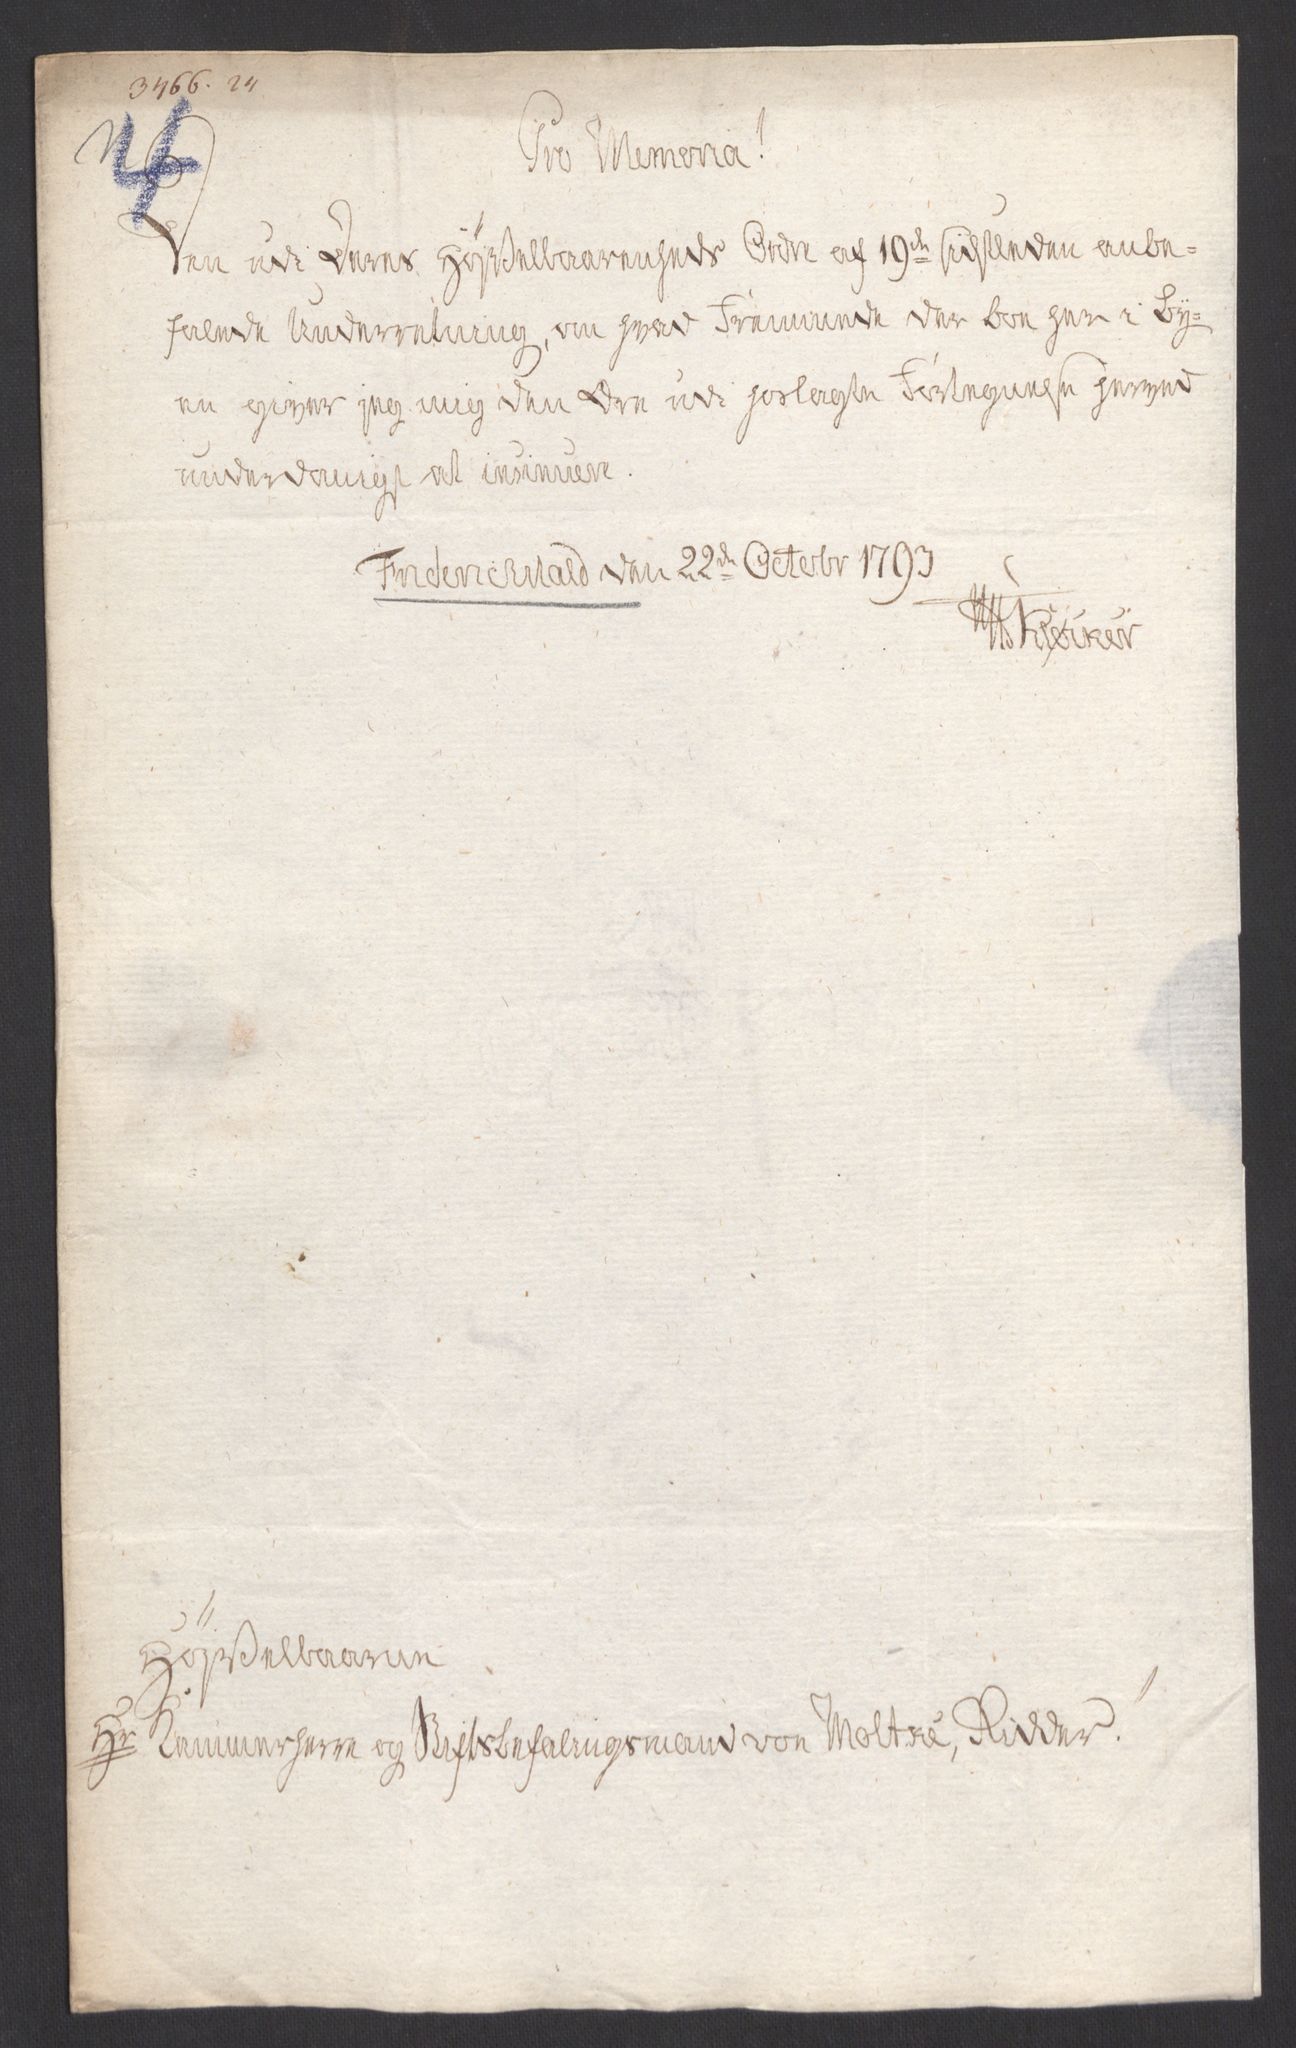 3466. 24
4
Pro Memoria!
Den udi Deres Højvelbaarenheds Ordre af 19de sidstleden anbe=
falede Underretning, om hvad Fremmede der boe her i By=
en giver jeg mig den Ære udi hoslagte Fortegnelse herved
underdanigst at insinuere.
Friderichsald den 22de Octobr 1793
Højvelbaarne
Hr Kammerherre og Stiftsbefalingsmand von Moltke, Ridder!